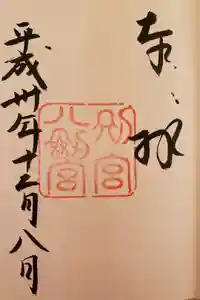 奉拝
別宮
八剱宮
平成卅年十二月八日